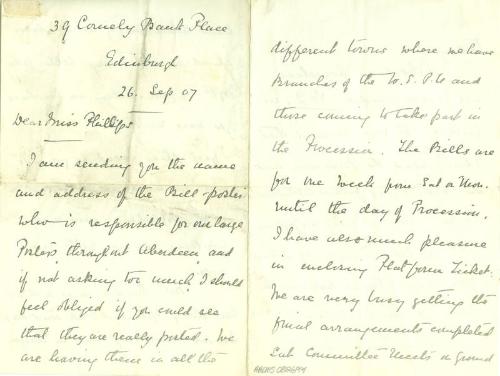 39 Comely Bank Place
Edinburgh
26. Sep 07
Dear Miss Phillips
I am sending you the name
and address of the Bill-poster
who is responsible for our large
Posters, throughout Aberdeen, and
if not asking too much, I should
feel obliged if you could see
that they are really posted. We
are having them in all the
different towns where we have
Branches of the W.S.P.U and
those coming to take part in
the Procession. The Bills are
for one week from Sat or Mon.
until the day of Procession.
I have also much pleasure
in enclosing Platform Ticket.
We are very busy getting the
final arrangements completed
Sub Committee Meets on Ground